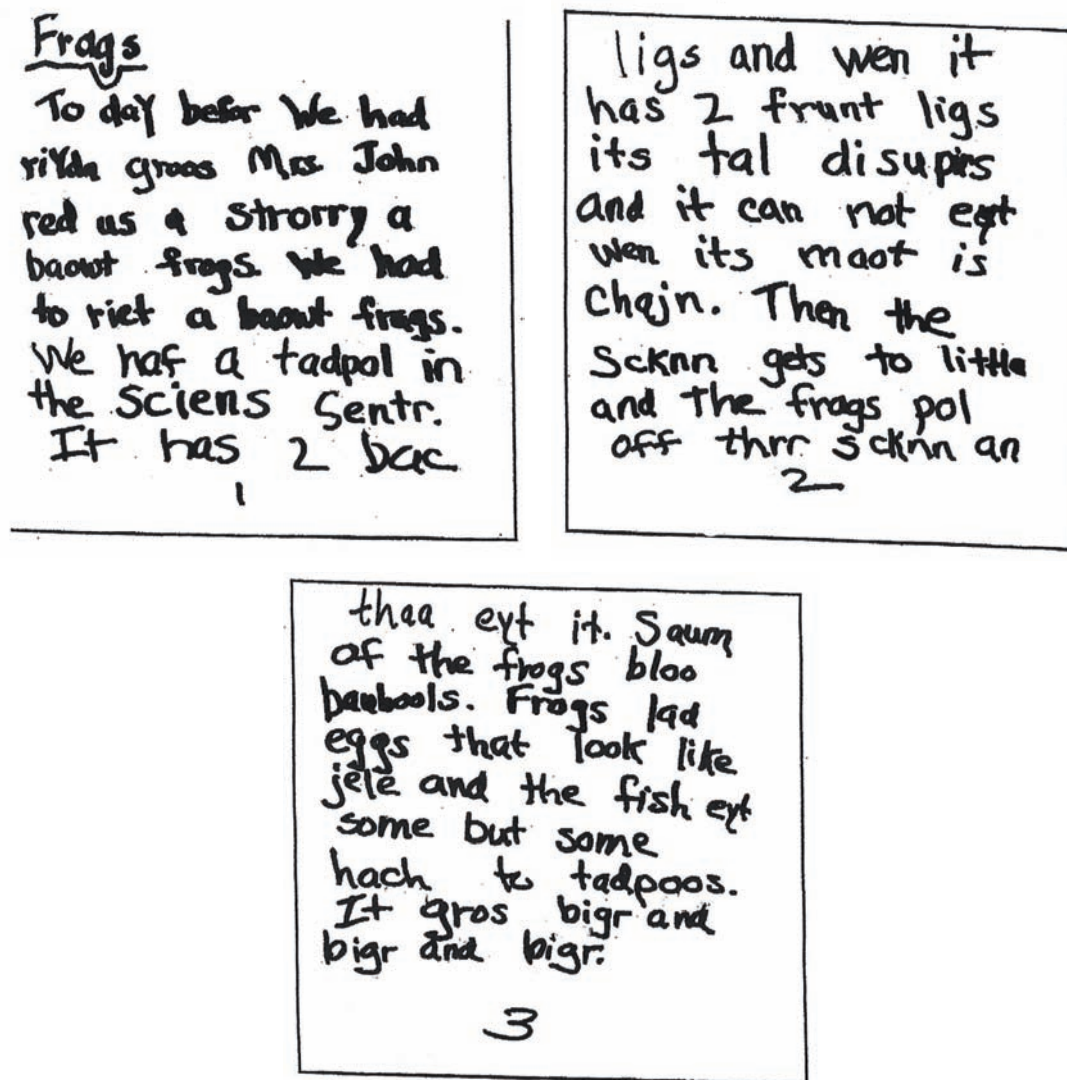 Frogs
To day befor We had
riYdn groos Mrs. John
red us a strorry a
baowt frogs. We had
to riet a baowt frogs.
We haf a tadpol in
the sciens sentr.
It has 2 bac
1
ligs and wen it
has 2 frunt ligs
its tal disupirs
and it can not eyt
wen its maot is
chajn. Then the
Scknn gets to little
and the frogs pol
off thrr scknn an
2
thaa eyt it. Saum
of the frogs bloo
baubools. Frogs lad
eggs that look like
jele and the fish eyt
some but some
hach to tadpoos.
It gros bigr and
bigr and bigr.
3